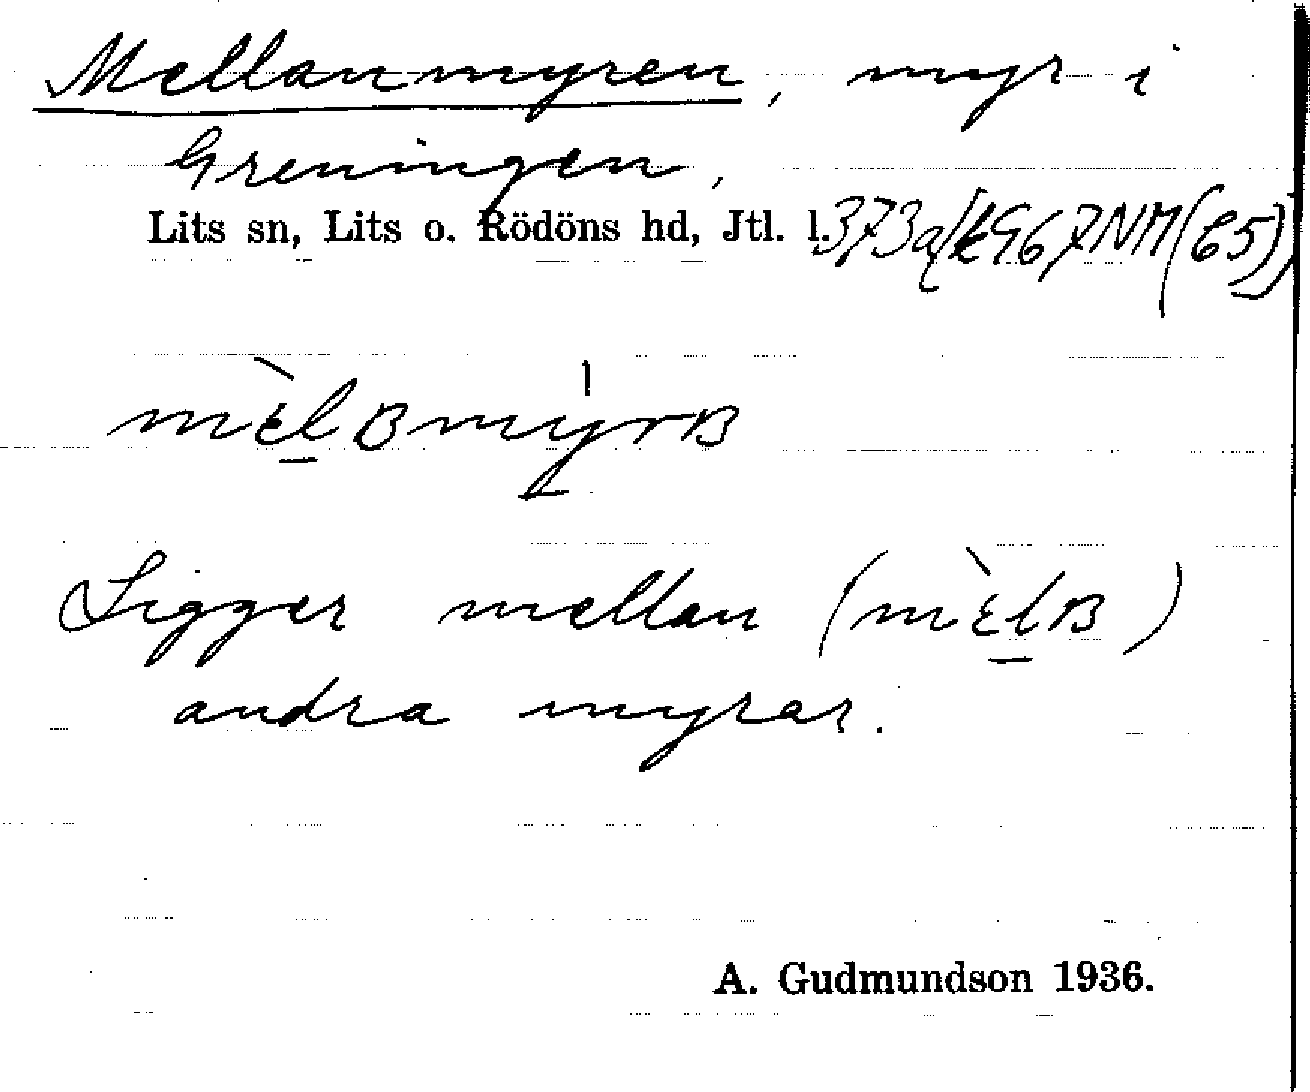 Mellanmyren, myr i
Greningen,
Lits sn, Lits o. Rödöns hd, Jtl. l.
mɛ̀lʙmy̍rʙ
Ligger mellan (mɛ̀lʙ)
andra myrar.
A. Gudmundson 1936.